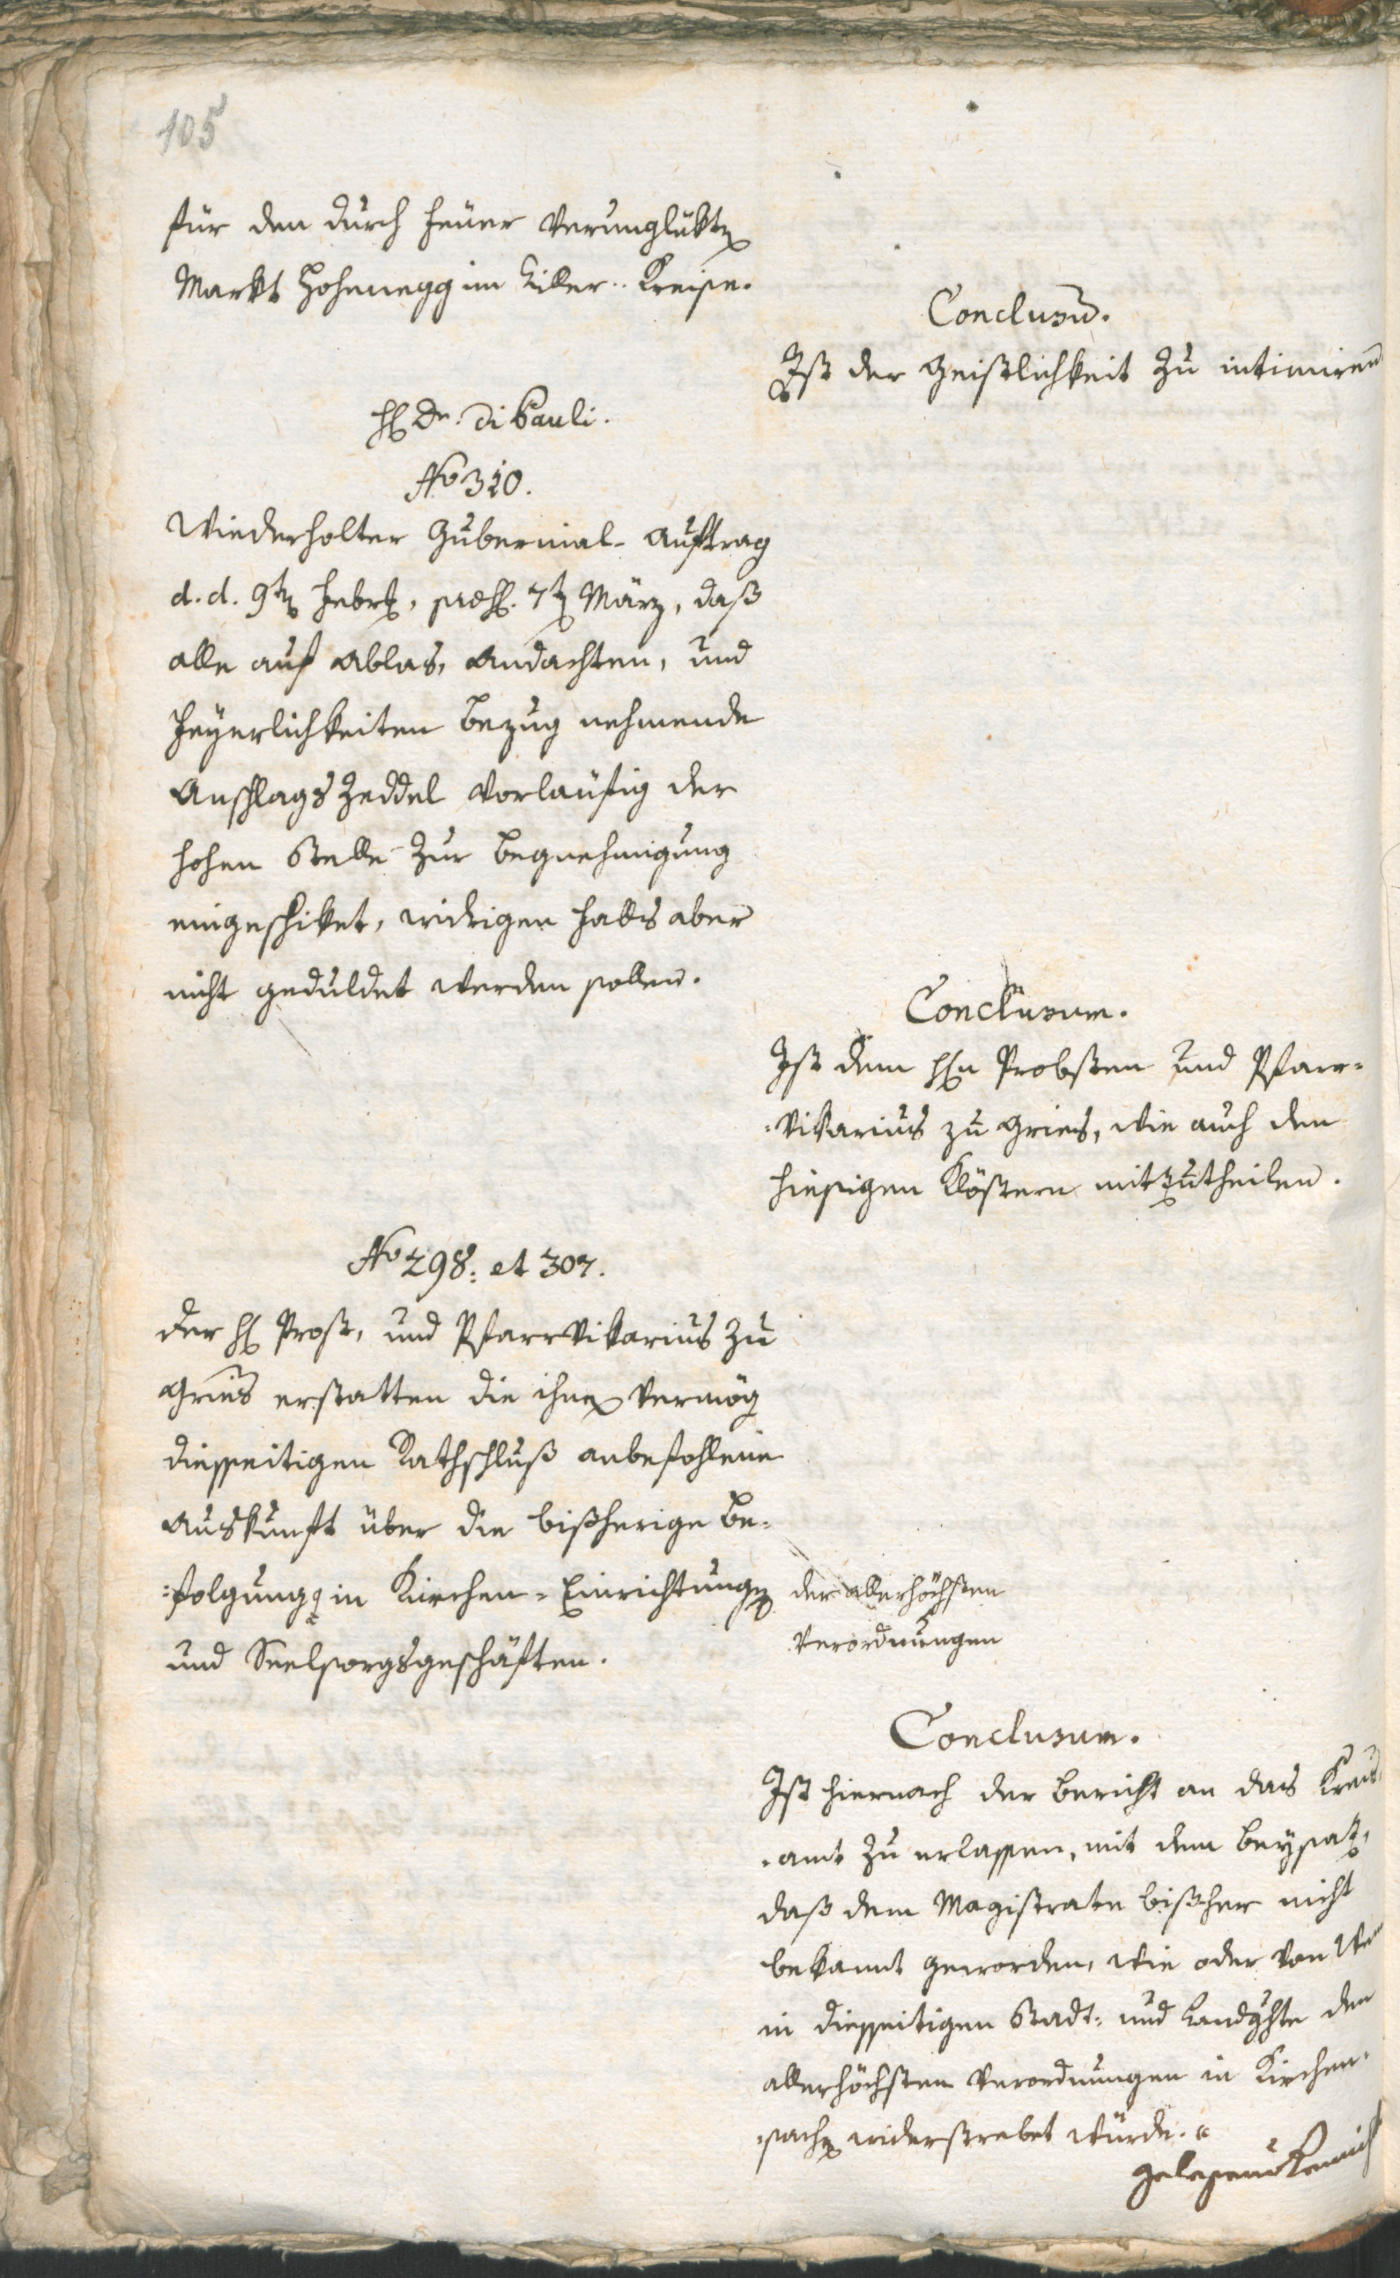 105
für den durch Feüer verunglükten
Markt Hohenegg im Ziller-Kreise.
Conclusum.
Ist der Geistlichkeit zu intimiren
H. Dr. di Pauli.
No 310.
Wiederholter Gubernial-Auftrag
d.d. 9ten Febr., praes. 7ten März, daß
alle auf Ablas, Andachten, und
Feyerlichkeiten Bezug nehmende
Anschlags Zeddel vorläufig der
hohen Stelle zur Begnehmigung
eingeschiket, widrigen Falls aber
nicht geduldet werden sollen.
Conclusum.
Ist dem Hn Probsten und Pfarr-
-Vikarius zu Gries, wie auch den
hiesigen Klöstern mitzutheilen.
No 298: et 307.
Der H. Probst, und Pfarrvikarius zu
Gries erstatten die ihnen vermög
diesseitigen Rathschluß anbefohlene
Auskunft über die bißherige Be-
-folgung in Kirchen-Einrichtungen
und Seelsorgsgeschäften.
der allerhöchsten
Verordnungen
Conclusum.
Ist hiernach der Bericht an das Kreis
-amt zu erlassen, mit dem Beysatz,
daß dem Magistrate bißher nicht
bekannt geworden, wie oder von wem
in diesseitigen Stadt- und Landgehte den
allerhöchsten Verordnungen in Kirchen-
-sachen widerstrebet würde.
gelesen